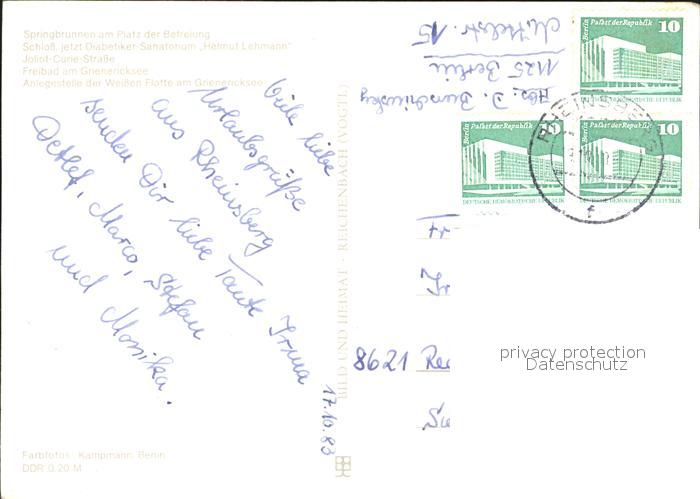 Springbrunnen am Platz der Befreiung
Schloß, jetzt Diabetiker-Sanatorium „Helmut Lehmann"
Joliot-Curie-Straße
Freibad am Grienericksee
Anlegestelle der Weißen Flotte am Grienericksee
Viele liebe
Urlaubsgrüße
aus Rheinsberg
senden Dir liebe Tante Irma
Detlef, Marco, Stefan
und Monika.
17.10.83
Farbfotos: Kampmann, Berlin
DDR 0,20 M
BILD UND HEIMAT · REICHENBACH (VOGTL)
Abs. D.
1125 Berlin
Mittelstr. 15
Berlin Palast der Republik 10
DEUTSCHE DEMOKRATISCHE REPUBLIK
Berlin Palast der Republik 10
DEUTSCHE DEMOKRATISCHE REPUBLIK
Berlin Palast der Republik 10
DEUTSCHE DEMOKRATISCHE REPUBLIK
RHEINSBERG
f
8621
privacy protection
Datenschutz